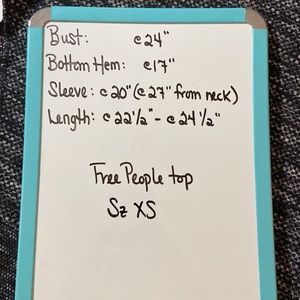 Bust: c 24"
Bottom Hem: c 17"
Sleeve: c 20" (c 27" from neck)
Length: c 22 1/2" - c 24 1/2"
Free People top
Sz XS